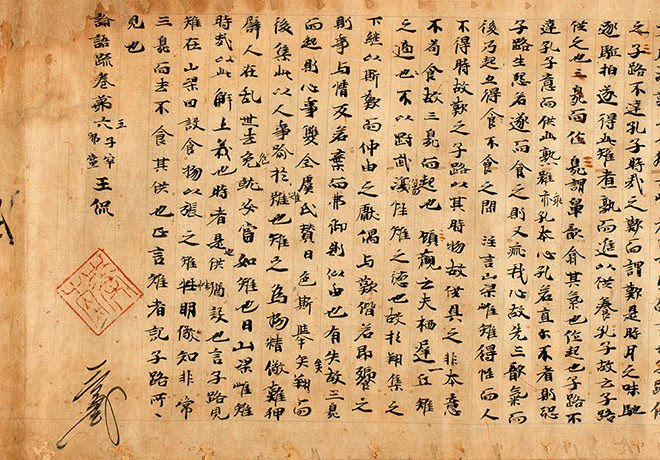 之子路不達孔子時哉之歎而謂歎是時月之味馳
逐駈拍遂得此雉者熟而進以供養孔子故云子路
供之也三臭而作臭謂鼻歆翕其氣也作起也子路不
達孔子意而供此熟雖乖孔本心孔若直尒不者則恐
子路生怨若遂而食之則又乖我心故先三歎氣而
後乃起亙得食不食之間 注言山梁雌雉得性而人
不得時故歎之子路以其時物故供具之非本意
不苟食故三臭而起也 顧歡云夫栖遲一丘雉
之適也不以剛武傷性雉之德也故於翔集之
下継以斯歎而仲由之獻偶与歎偕若即饗之
則事与情反若棄而弗御則似由也有失故三臭
而起則心事雙全虞氏賛曰色斯舉矣翔而
後集此以人事喩於雉也雉之為物精儆難狎
譬人在乱世去危就安當如雉也曰山梁雌雉
時哉以此解上義也時者是也供猶設也言子路見
雉在山梁因設食物以張之雉性明儆知非常
三臭而去不食其供也正言雌者記子路所
見也
論語疏卷第六 五子罕 王侃